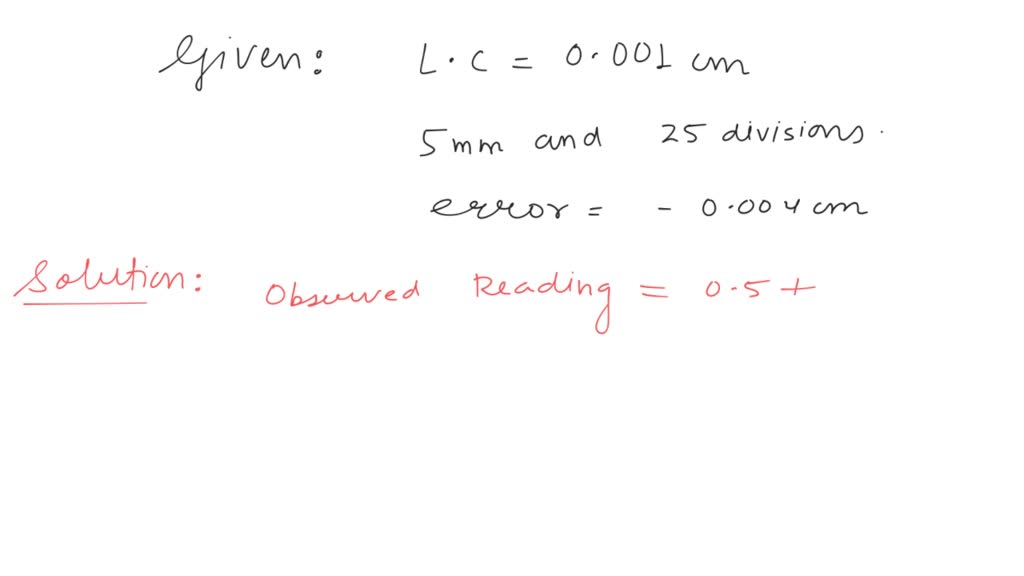 Given: L.C = 0.001 cm
5mm and 25 divisions.
error = - 0.004 cm
Solution: Observed Reading = 0.5 +